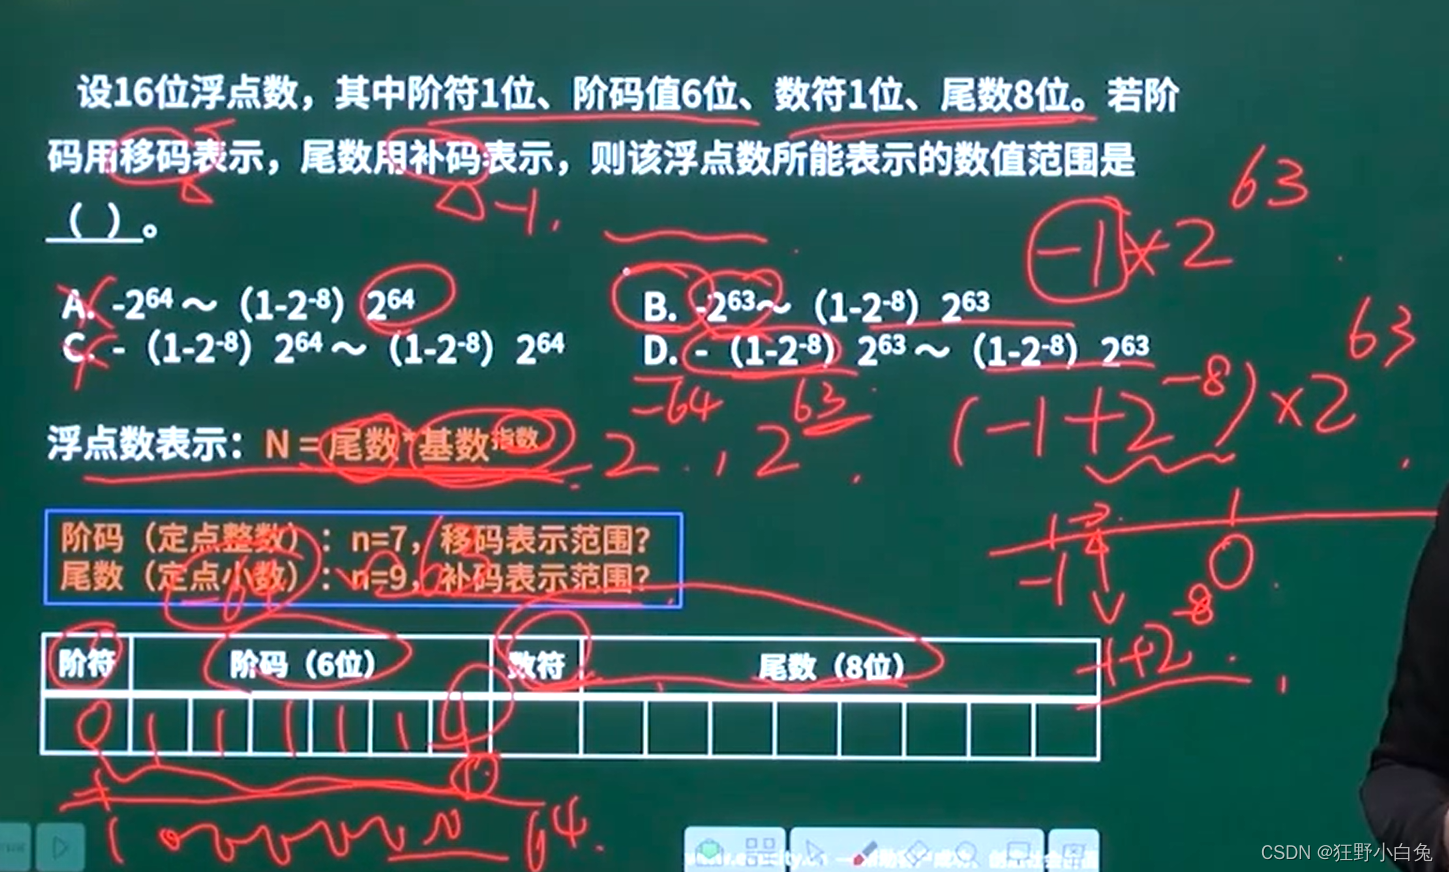 设16位浮点数，其中阶符1位、阶码值6位、数符1位、尾数8位。若阶
码用移码表示，尾数用补码表示，则该浮点数所能表示的数值范围是
（ ）。
-1.
-1×2^63
A. -2^64～（1-2^-8）2^64
B. -2^63～（1-2^-8）2^63
C. -（1-2^-8）2^64～（1-2^-8）2^64
D. -（1-2^-8）2^63～（1-2^-8）2^63
(-1+2^-8)×2^63
浮点数表示：N = 尾数*基数^指数
2^-64 , 2^63
阶码（定点整数）：n=7，移码表示范围？
尾数（定点小数）：n=9，补码表示范围？
-64～63
-1 0
-1+2^-8
阶符 阶码（6位） 数符 尾数（8位）
0 1 1 1 1 1 1
64
CSDN @狂野小白兔